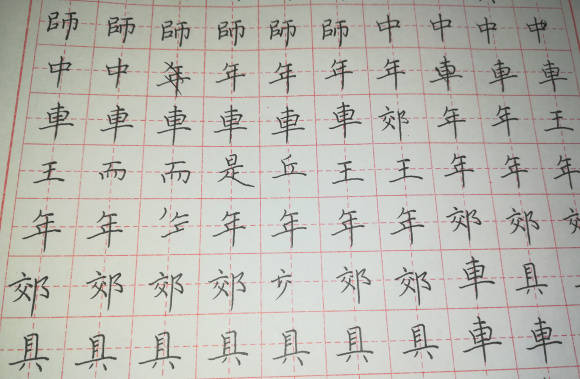 師師師師師師中中中中
中中年年年年車車車
車車車車車車郊年年王
王而而是丘王王年年年
年年年年年年郊郊
郊郊郊郊郊郊車具
具具具具具具具車車